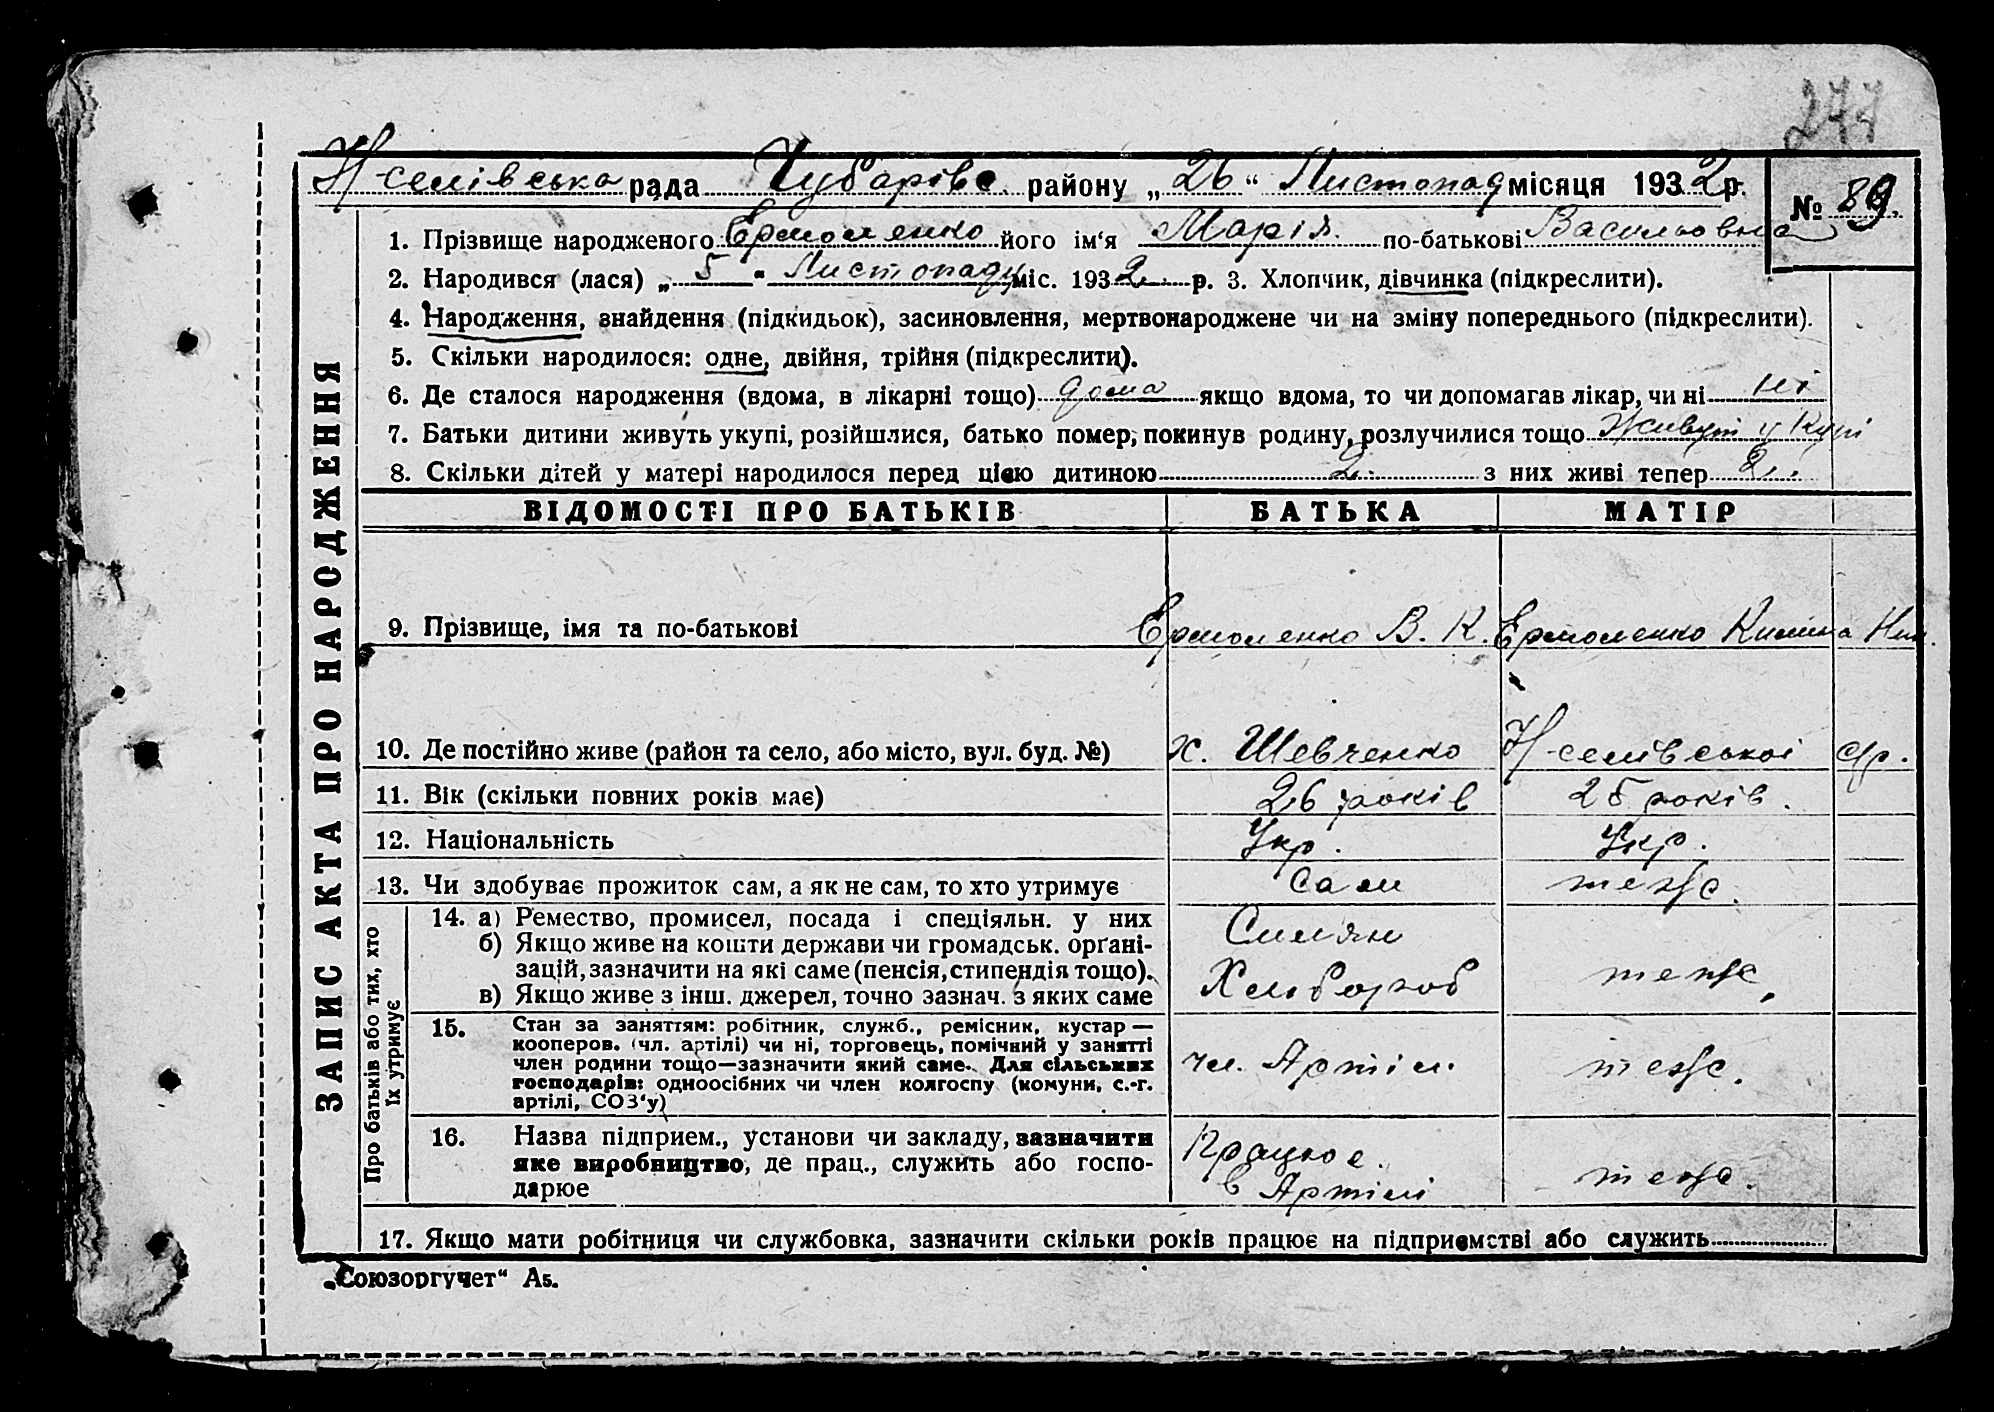 277
Н-селівська рада Чубарівс. району „26“ Листопад місяця 1932 р.
№ 89.
ЗАПИС АКТА ПРО НАРОДЖЕННЯ
1. Прізвище народженого Ермоленко його ім‘я Марія по-батькові Васильовна
2. Народився (лася) „5“ Листопаду міс. 1932 р. 3. Хлопчик, дівчинка (підкреслити).
4. Народження, знайдення (підкидьок), засиновлення, мертвонароджене чи на зміну попереднього (підкреслити).
5. Скільки народилося: одне, двійня, трійня (підкреслити).
6. Де сталося народження (вдома, в лікарні тощо) дома якщо вдома, то чи допомагав лікар, чи ні ні
7. Батьки дитини живуть укупі, розійшлися, батько помер, покинув родину, розлучилися тощо Живут у Купі
8. Скільки дітей у матері народилося перед цією дитиною 2. з них живі тепер 2.
ВІДОМОСТІ ПРО БАТЬКІВ БАТЬКА МАТІР
9. Прізвище, імя та по-батькові Ермоленко В. К. Ермоленко
10. Де постійно живе (район та село, або місто, вул. буд. №) х. Шевченко Н-селівської с/р.
11. Вік (скільки повних років має) 26 років 25 років.
12. Національність Укр. Укр.
13. Чи здобуває прожиток сам, а як не сам, то хто утримує Сам теж.
Про батьків або тих, хто
їх утримує
14. а) Ремество, промисел, посада і спеціяльн. у них
б) Якщо живе на кошти держави чи громадськ. орґані-
зацій, зазначити на які саме (пенсія, стипендія тощо).
в) Якщо живе з інш. джерел, точно зазнач. з яких саме
Хлібороб
теж.
15. Стан за заняттям: робітник, служб., ремісник, кустар —
кооперов. (чл. артілі) чи ні, торговець, помічний у занятті
член родини тощо—зазначити який саме. Для сільських
господарів: одноосібних чи член колгоспу (комуни, с.-г.
артілі, СОЗ‘у)
чл. Артіл.
теж.
16. Назва підприєм., установи чи закладу, зазначити
яке виробництво, де прац., служить або госпо-
дарює
Працює
в Артілі
теж.
17. Якщо мати робітниця чи службовка, зазначити скільки років працює на підприємстві або служить
„Союзоргучет“ А5.